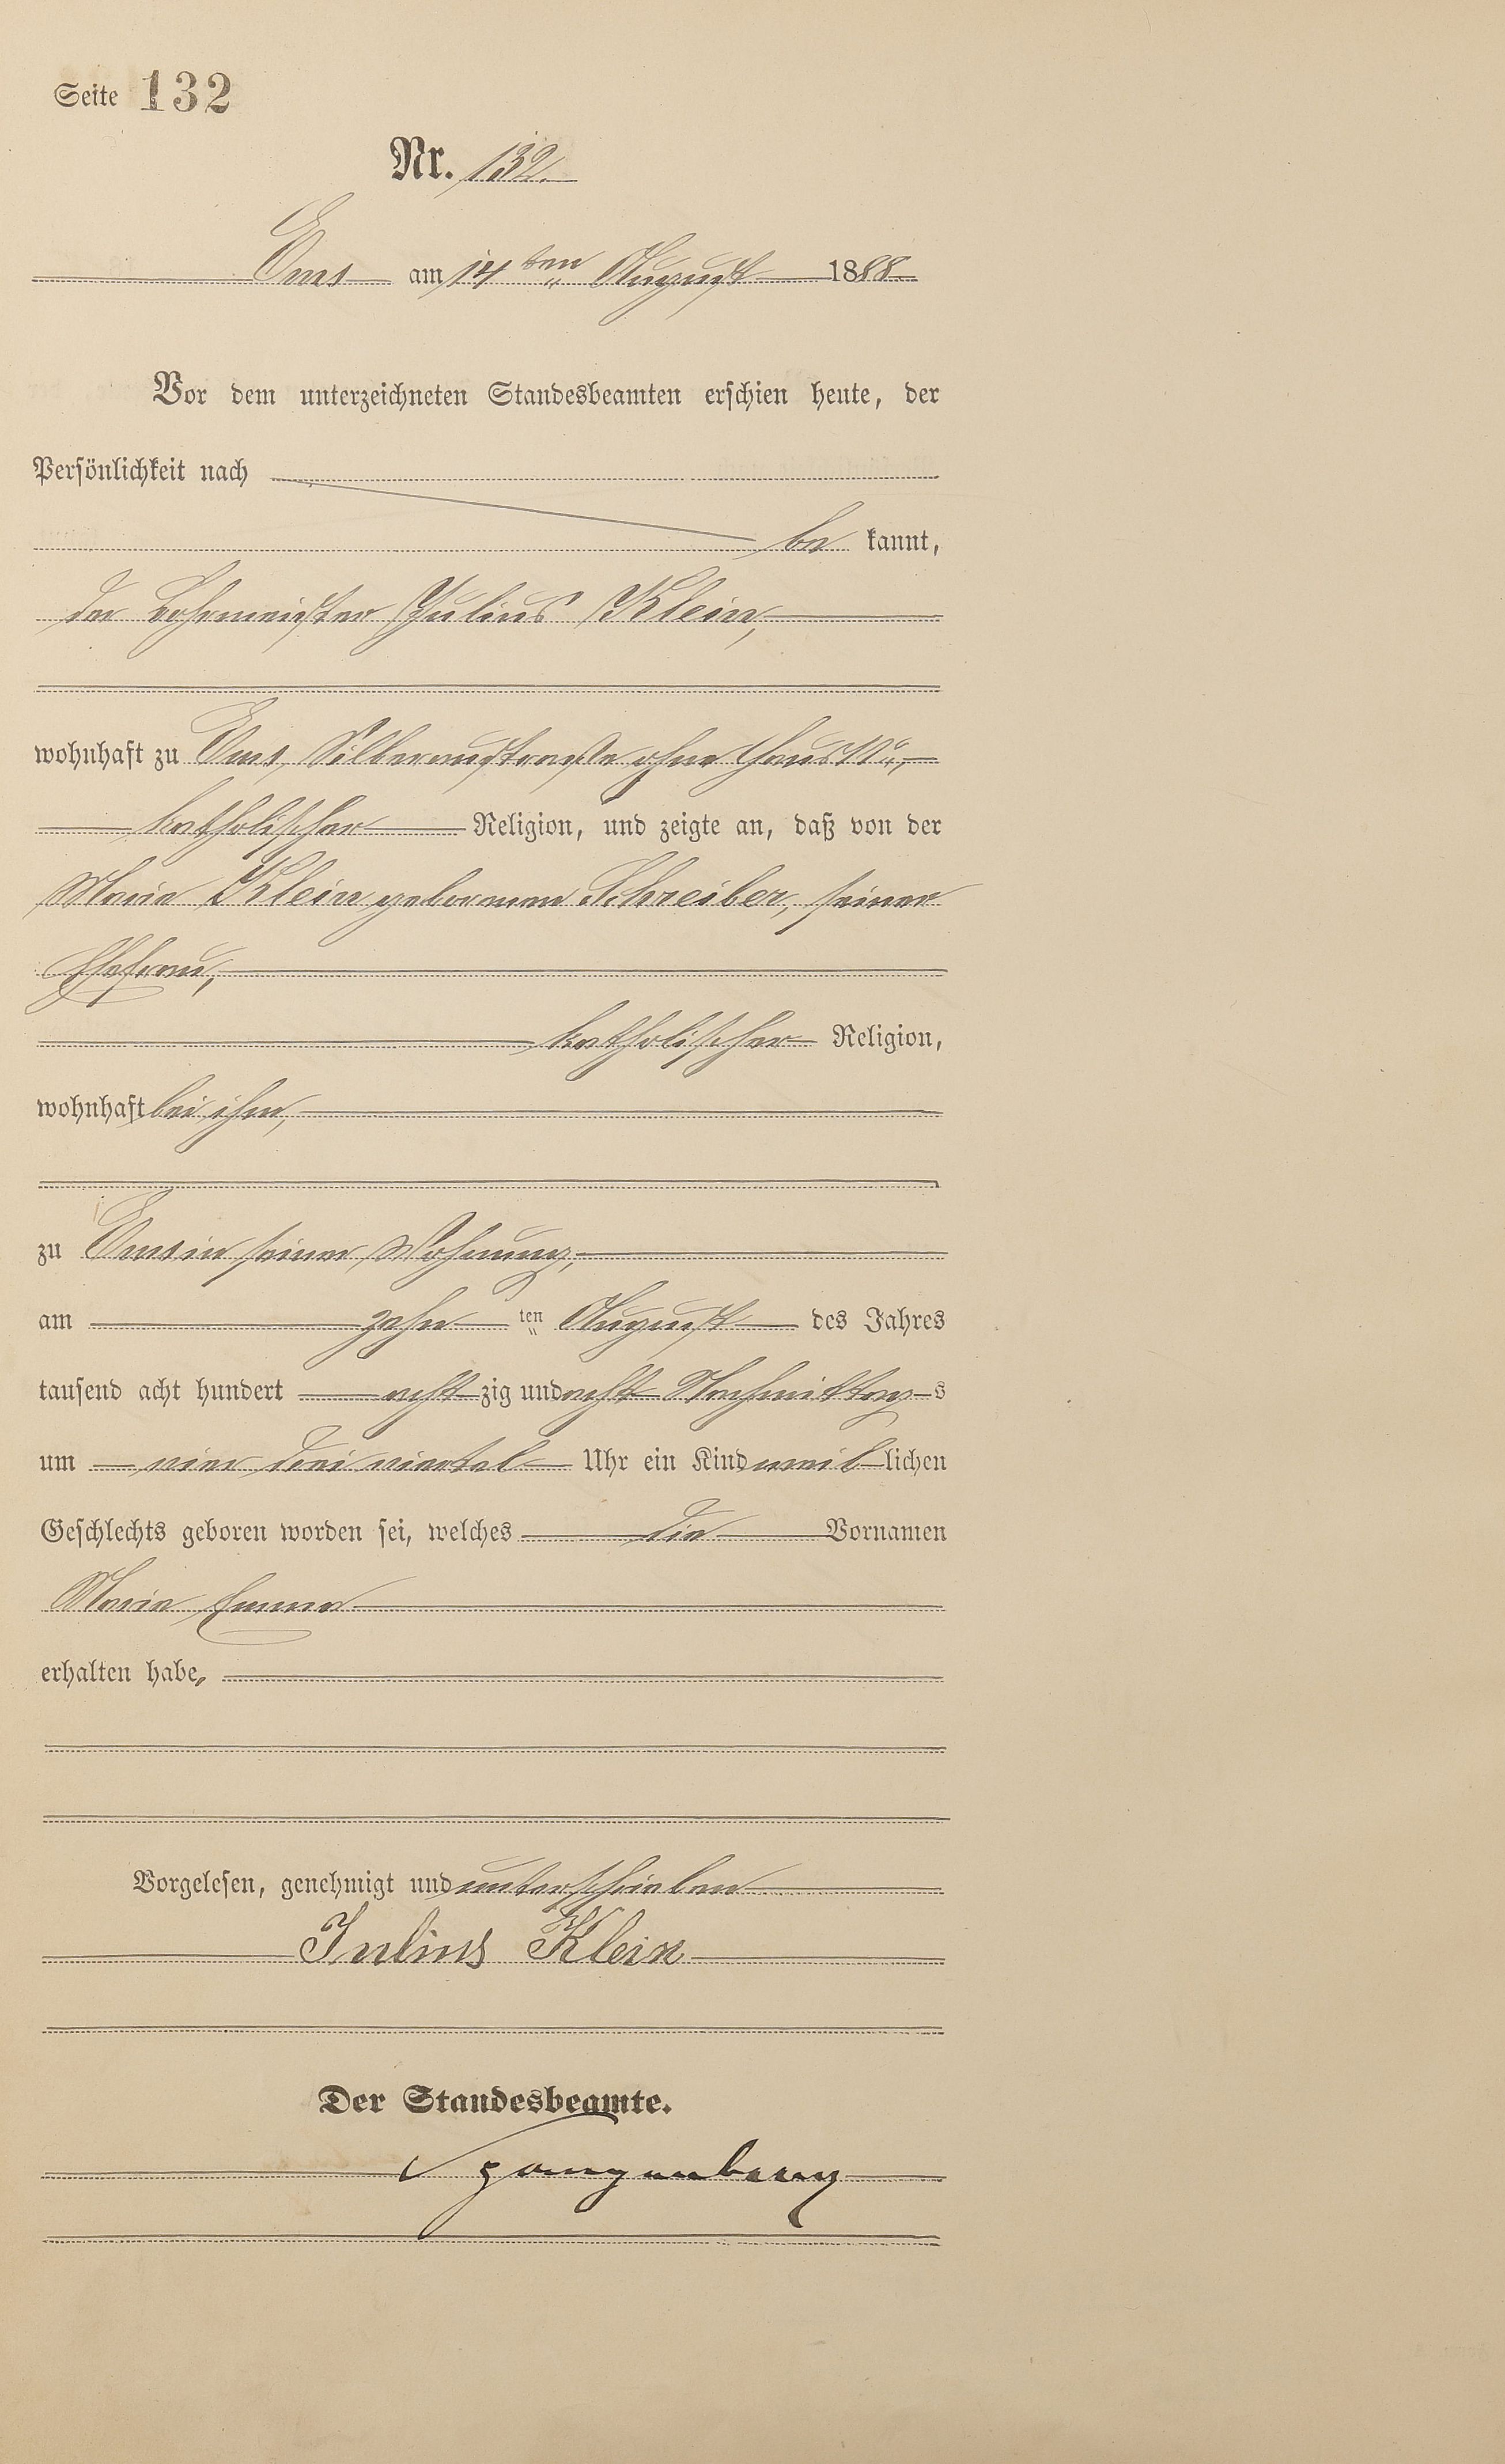 Seite 132
Nr. 132.
Ems am 14ten August 1888
Vor dem unterzeichneten Standesbeamten erschien heute, der
Persönlichkeit nach
be kannt,
der Bohrmeister Julius Klein,
wohnhaft zu Ems, Silberaustraße ohne Haus No,
katholischer Religion, und zeigte an, daß von der
Maria Klein geborenen Schreiber, seiner
Ehefrau,
katholischer Religion,
wohnhaft bei ihm,
zu Ems in seiner Wohnung,
am zehn ten August des Jahres
tausend acht hundert acht zig und acht Nachmittag s
um vier dreiviertel Uhr ein Kind weib lichen
Geschlechts geboren worden sei, welches die Vornamen
Maria Emma
erhalten habe,
Vorgelesen, genehmigt und unterschrieben
Julius Klein
Der Standesbeamte.